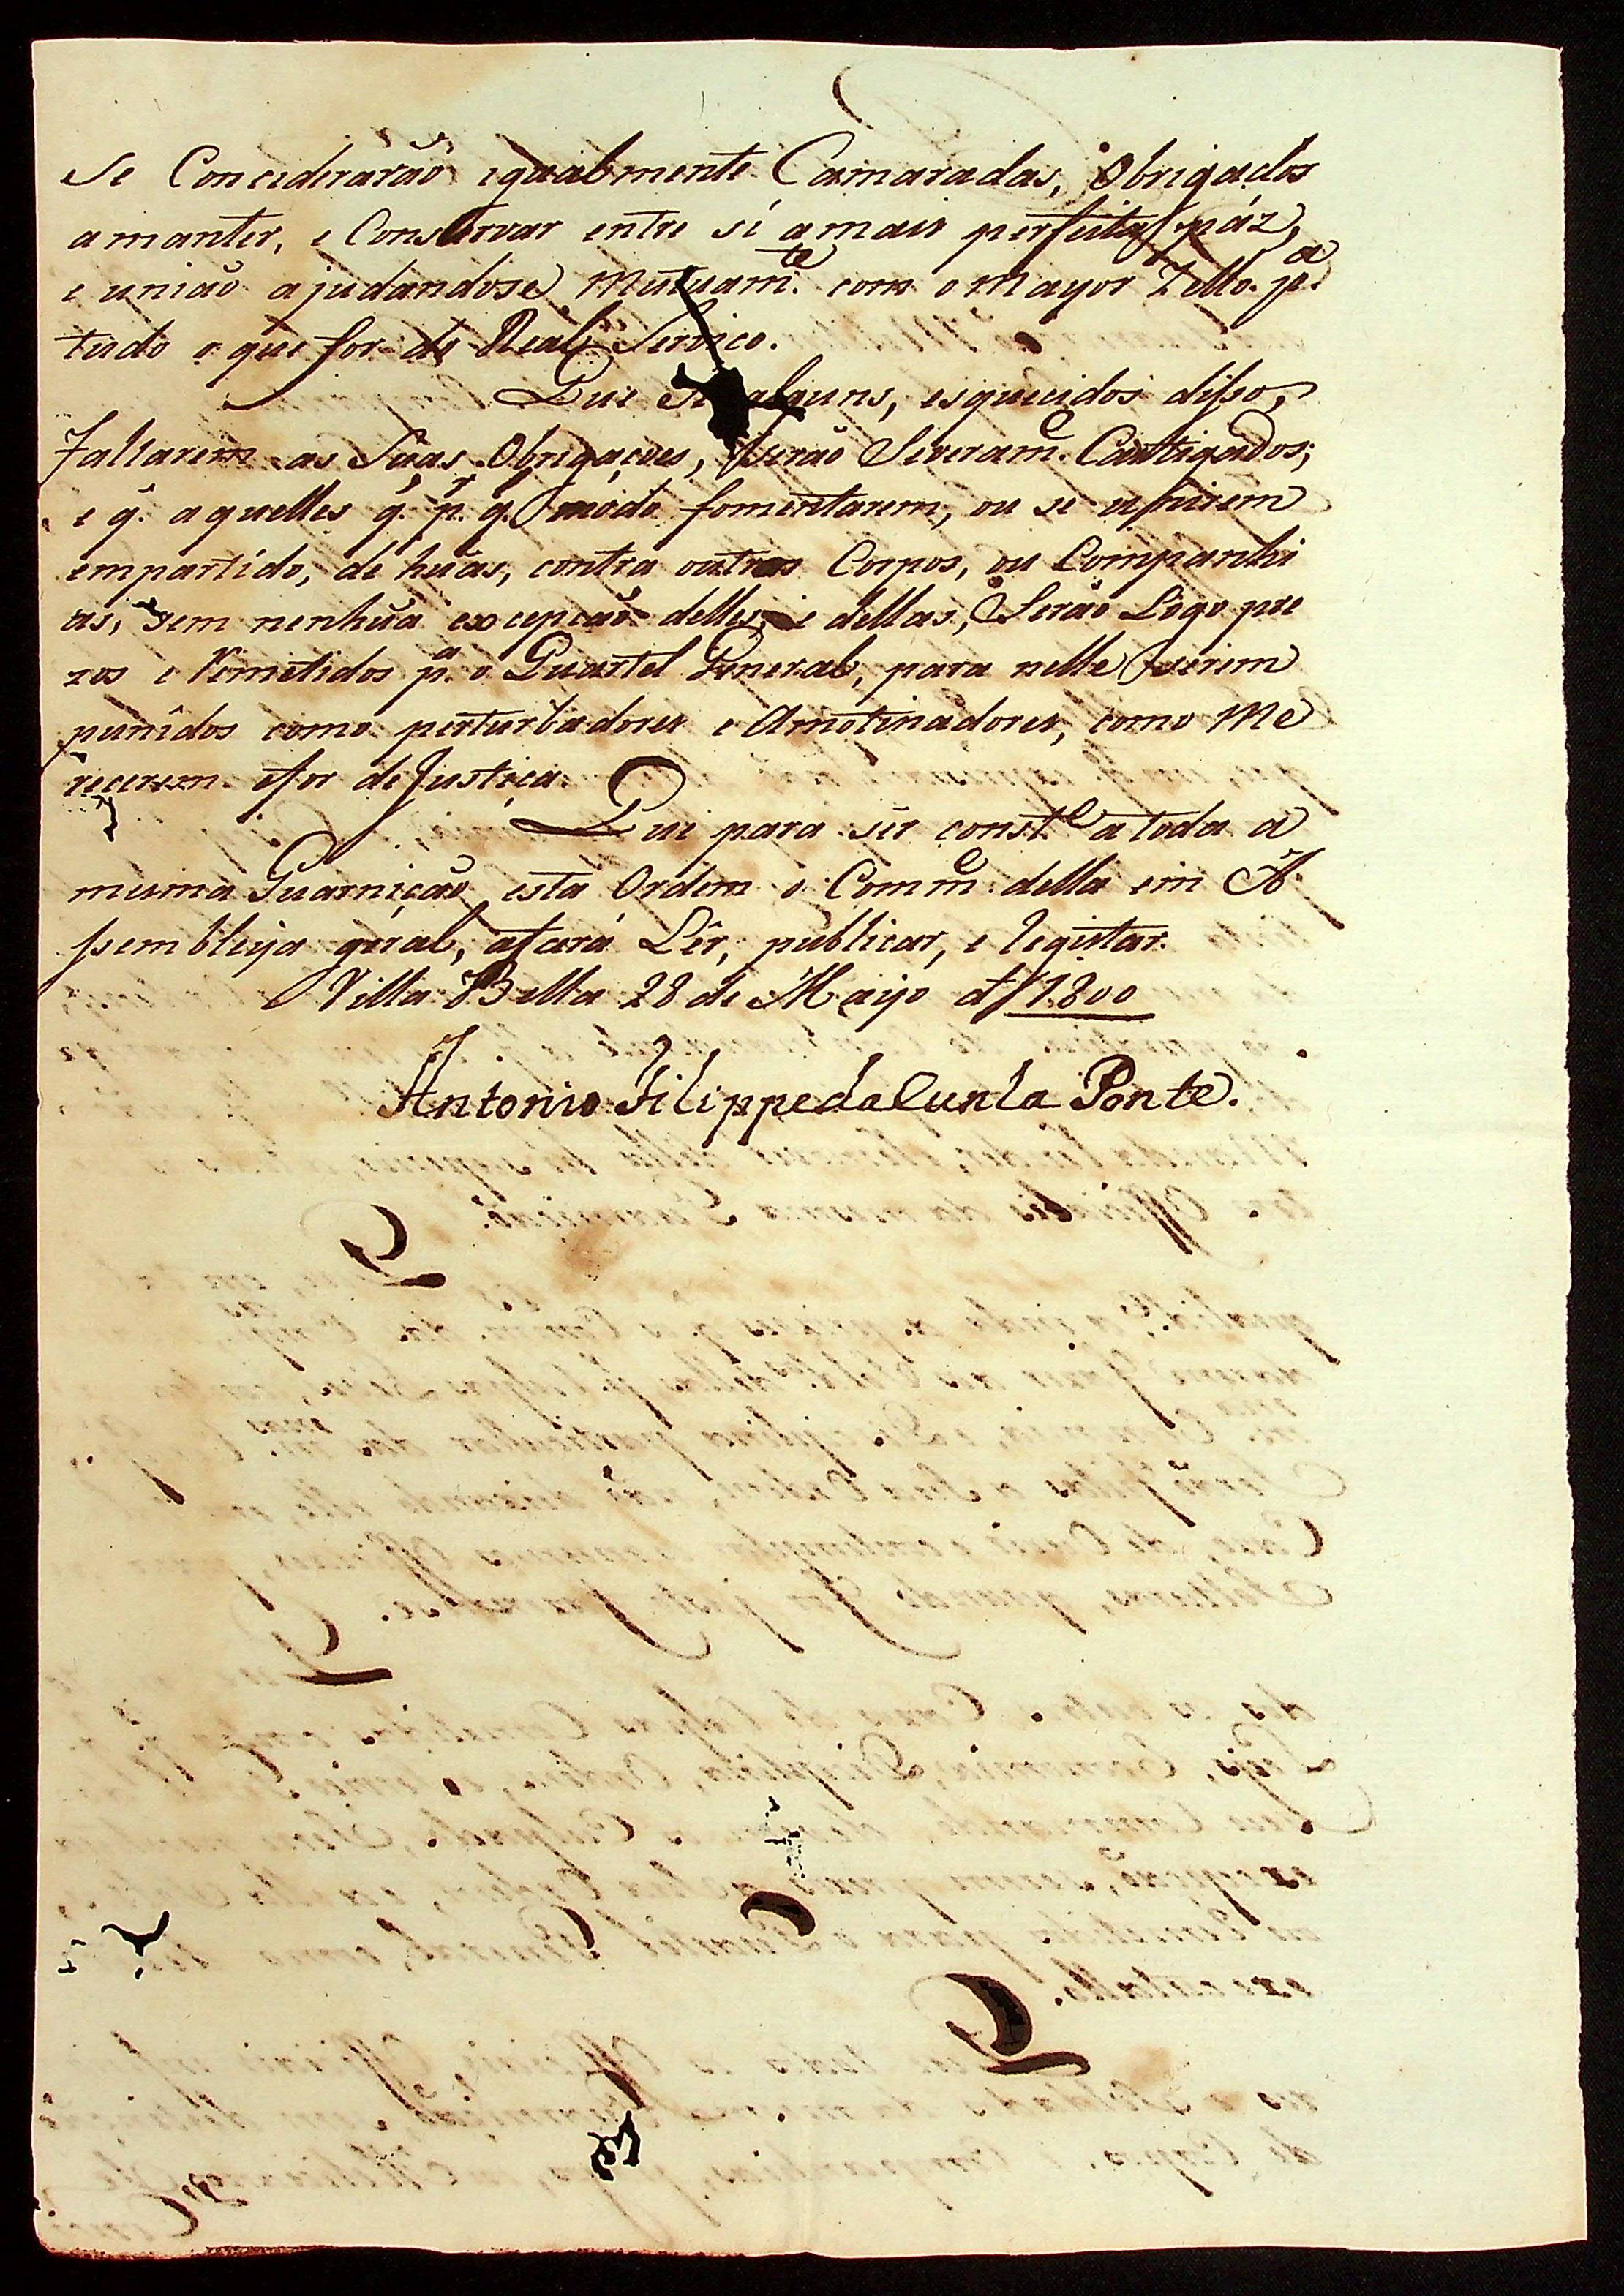 Se Conciderarão igualmente Camaradas, Obrigados
amanter, e Conservar entre sí amais perfeita páz,
e união ajudandose Mutuam.te com o Mayor Zello p.a
tudo o que for do Real Servico.
Que Se alguns, esquecidos disso,
Faltarem as Suas Obrigaçoes, Serão Severam.e Castigados;
e q. aquelles q. p.r q. modo fomentarem, ou se unirem
empartido, de huãs, contra outros Corpos, ou Companhi
as, sem nenhuã excepcaõ delles, e dellas, Serão Lógo pre
zos e Remetidos p.a o Quartel General, para nelle serem
punîdos como perturbadores e Amotinadores, como Me
recerem efor deJustiça.
Que para ser const.e atoda a
mesma Guarniçaõ esta Ordem o Comm.e della em A
ssembleya geral, afará Lêr, publicar, e registar.
Villa Bella 28 de Mayo d/1800
Antonio Filippe da Cunha Ponte.